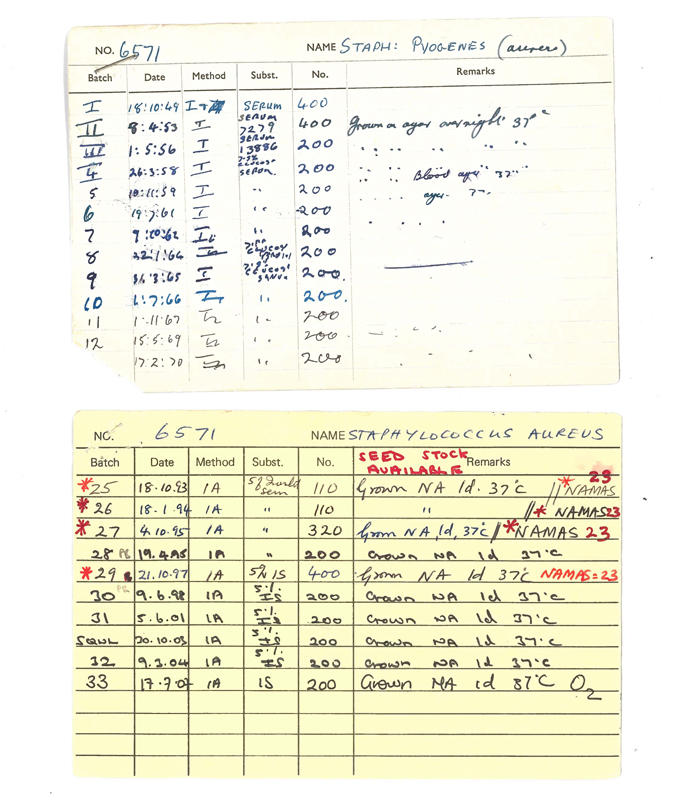 NO. 6571 NAME STAPH: PYOGENES (aureus)
Batch Date Method Subst. No. Remarks
I 18:10:49 I SERUM 400
II 8:4:53 I SERUM 7279 400 Grown on agar overnight 37°C
III 1:5:56 I SERUM 13886 200 " " " " "
4 26:3:58 I SERUM 200 " " Blood agar 37°C
5 10:11:59 I " 200 agar
6 19:7:61 I " 200
7 9:10:62 200
8 :1:64 200
9 :3:65 I 200.
10 1:7:66 I " 200.
11 1:11:67 " 200
12 15:5:69 " 200
17:2:70 " 200
NO. 6571 NAME STAPHYLOCOCCUS AUREUS
SEED STOCK AVAILABLE
Batch Date Method Subst. No. Remarks
*25 18.10.93 1A 5% 110 Grown NA 1d. 37°C //*NAMAS 23
*26 18.1.94 1A " 110 " //*NAMAS 23
*27 4.10.95 1A " 320 Grown NA, 1d, 37°C //*NAMAS 23
28 19.4.95 1A " 200 Grown NA 1d 37°C
*29 21.10.97 1A 5% IS 400 Grown NA 1d 37°C NAMAS=23
30 9.6.98 1A 5% IS 200 Grown NA 1d 37°C
31 5.6.01 1A 5% IS 200 Grown NA 1d 37°C
20.10.03 1A 5% IS 200 Grown NA 1d 37°C
32 9.3.04 1A 5% IS 200 Grown NA 1d 37°C
33 17.7.07 1A IS 200 Grown NA 1d 37°C O2